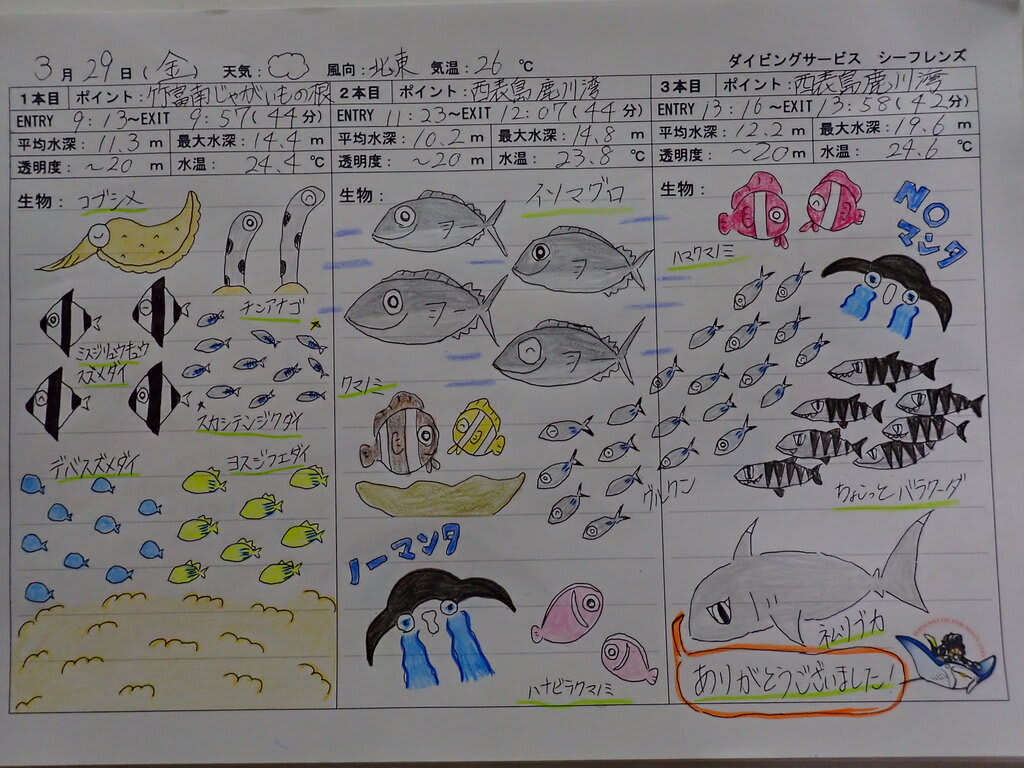 3月29日(金) 天気: 風向:北東 気温:26℃ ダイビングサービス シーフレンズ
1本目 ポイント:竹富南じゃがいもの根
ENTRY 9:13~EXIT 9:57(44分)
平均水深:11.3m 最大水深:14.4m
透明度:~20m 水温:24.4℃
生物: コブシメ
チンアナゴ
ミスジリュウキュウ
スズメダイ
スカシテンジクダイ
デバスズメダイ ヨスジフエダイ
2本目 ポイント:西表島鹿川湾
ENTRY 11:23~EXIT 12:07(44分)
平均水深:10.2m 最大水深:14.8m
透明度:~20m 水温:23.8℃
生物: イソマグロ
クマノミ
グルクン
ノーマンタ
ハナビラクマノミ
3本目 ポイント:西表島鹿川湾
ENTRY 13:16~EXIT 13:58(42分)
平均水深:12.2m 最大水深:19.6m
透明度:~20m 水温:24.6℃
生物:
NO
マンタ
ハマクマノミ
ちょこっとバラクーダ
ネムリブカ
ありがとうございました!